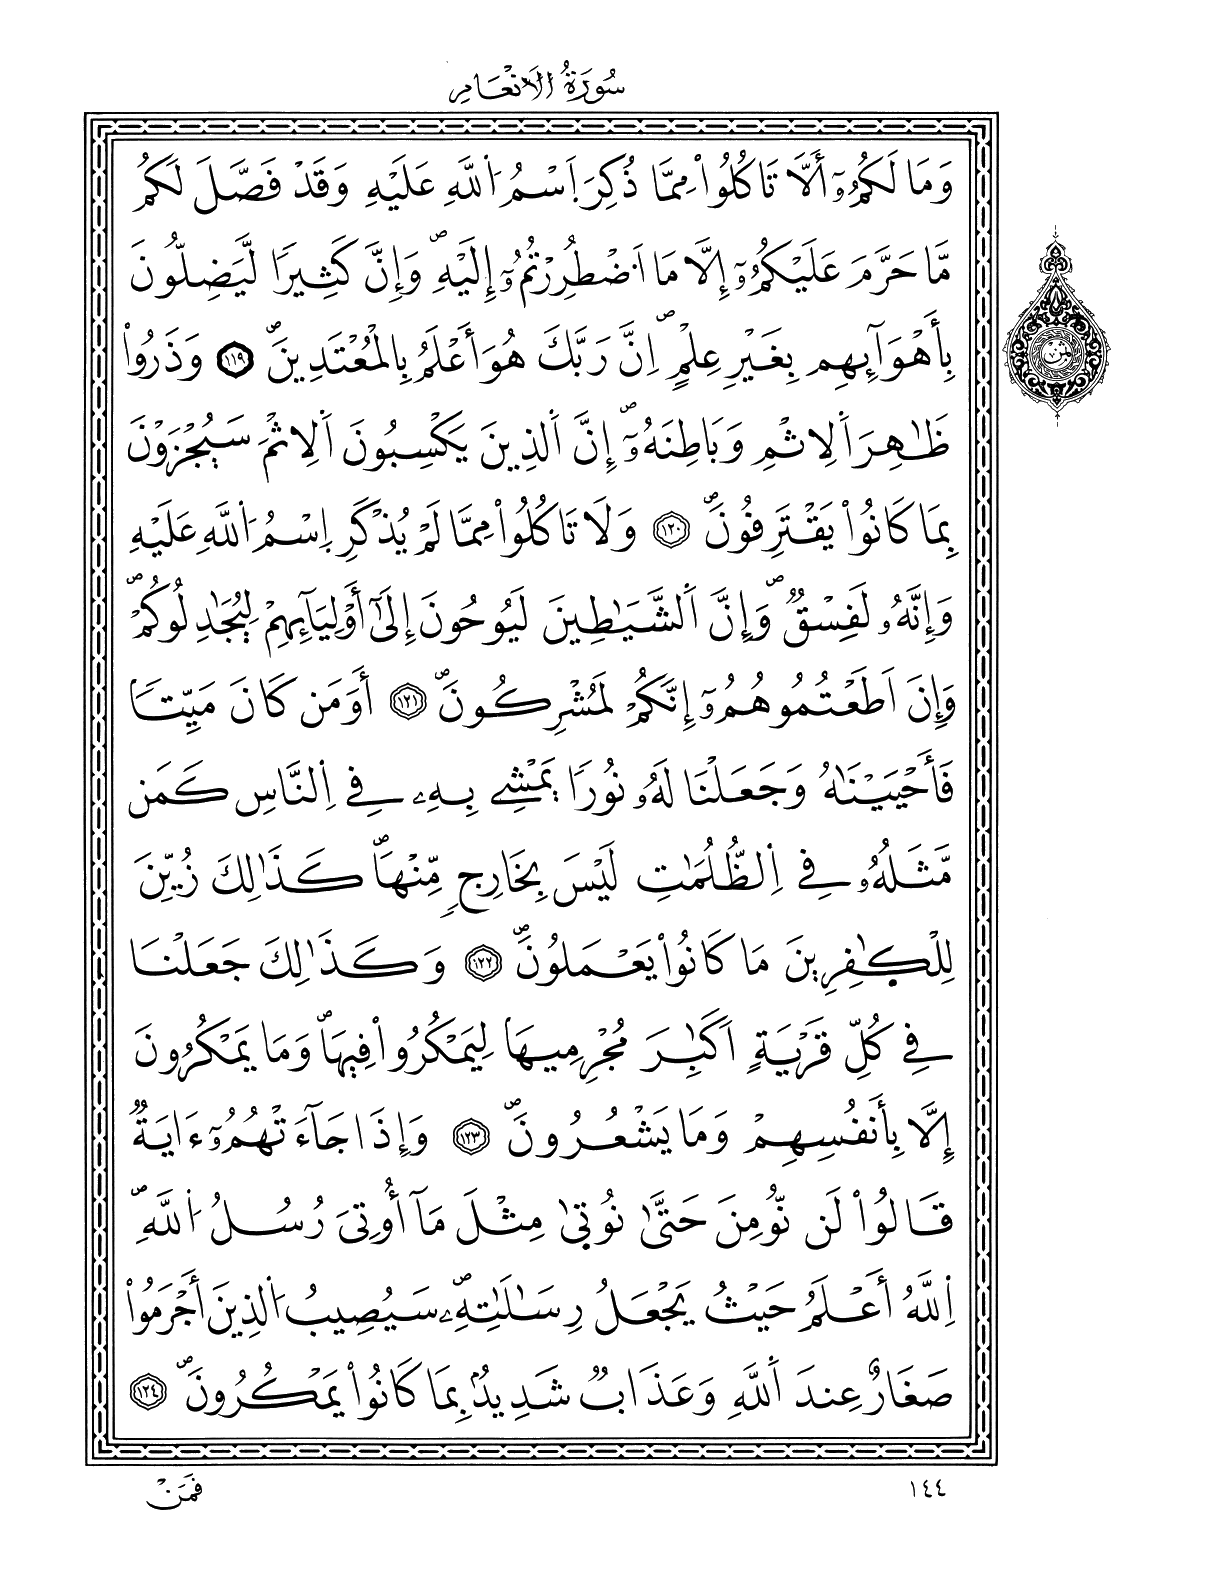 سُورَةُ الَانْعَامِ
وَمَا لَكُمُۥٓ أَلَّا تَاكُلُواْ مِمَّا ذُكِرَ اَ۪سْمُ اُ۬للَّهِ عَلَيْهِ وَقَدْ فَصَّلَ لَكُم
مَّا حَرَّمَ عَلَيْكُمُۥٓ إِلَّا مَا اَ۟ضْطُرِرْتُمُۥٓ إِلَيْهِۖ وَإِنَّ كَثِيراٗ لَّيَضِلُّونَ
بِأَهْوَآئِهِم بِغَيْرِ عِلْمٍۖ اِنَّ رَبَّكَ هُوَ أَعْلَمُ بِالْمُعْتَدِينَۖ ١١٩ وَذَرُواْ
ظَٰهِرَ اَ۬لِاثْمِ وَبَاطِنَهُۥٓۖ إِنَّ اَ۬لذِينَ يَكْسِبُونَ اَ۬لِاثْمَ سَيُجْزَوْنَ
بِمَا كَانُواْ يَقْتَرِفُونَۖ ١٢٠ وَلَا تَاكُلُواْ مِمَّا لَمْ يُذْكَرِ اِ۪سْمُ اُ۬للَّهِ عَلَيْهِ
وَإِنَّهُۥ لَفِسْقٞۖ وَإِنَّ اَ۬لشَّيَٰطِينَ لَيُوحُونَ إِلَىٰٓ أَوْلِيَآئِهِمْ لِيُجَٰدِلُوكُمْۖ
وَإِنَ اَطَعْتُمُوهُمُۥٓ إِنَّكُمْ لَمُشْرِكُونَۖ ١٢١ أَوَمَن كَانَ مَيِّتاٗ
فَأَحْيَيْنَٰهُ وَجَعَلْنَا لَهُۥ نُوراٗ يَمْشِے بِهِۦ فِے اِ۬لنَّاسِ كَمَن
مَّثَلُهُۥ فِے اِ۬لظُّلُمَٰتِ لَيْسَ بِخَارِجٖ مِّنْهَاۖ كَذَٰلِكَ زُيِّنَ
لِلْكٰ۪فِرِينَ مَا كَانُواْ يَعْمَلُونَۖ ١٢٢ وَكَذَٰلِكَ جَعَلْنَا
فِے كُلِّ قَرْيَةٍ اَكَٰبِرَ مُجْرِمِيهَا لِيَمْكُرُواْ فِيهَاۖ وَمَا يَمْكُرُونَ
إِلَّا بِأَنفُسِهِمْ وَمَا يَشْعُرُونَۖ ١٢٣ وَإِذَا جَآءَتْهُمُۥٓ ءَايَةٞ
قَالُواْ لَن نُّومِنَ حَتَّىٰ نُوتَىٰ مِثْلَ مَآ أُوتِيَ رُسُلُ اُ۬للَّهِۖ
اِ۬للَّهُ أَعْلَمُ حَيْثُ يَجْعَلُ رِسَٰلَٰتِهِۦۖ سَيُصِيبُ اُ۬لذِينَ أَجْرَمُواْ
صَغَارٌ عِندَ اَ۬للَّهِ وَعَذَابٞ شَدِيدُۢ بِمَا كَانُواْ يَمْكُرُونَۖ ١٢٤
١٤٤
فَمَنْ